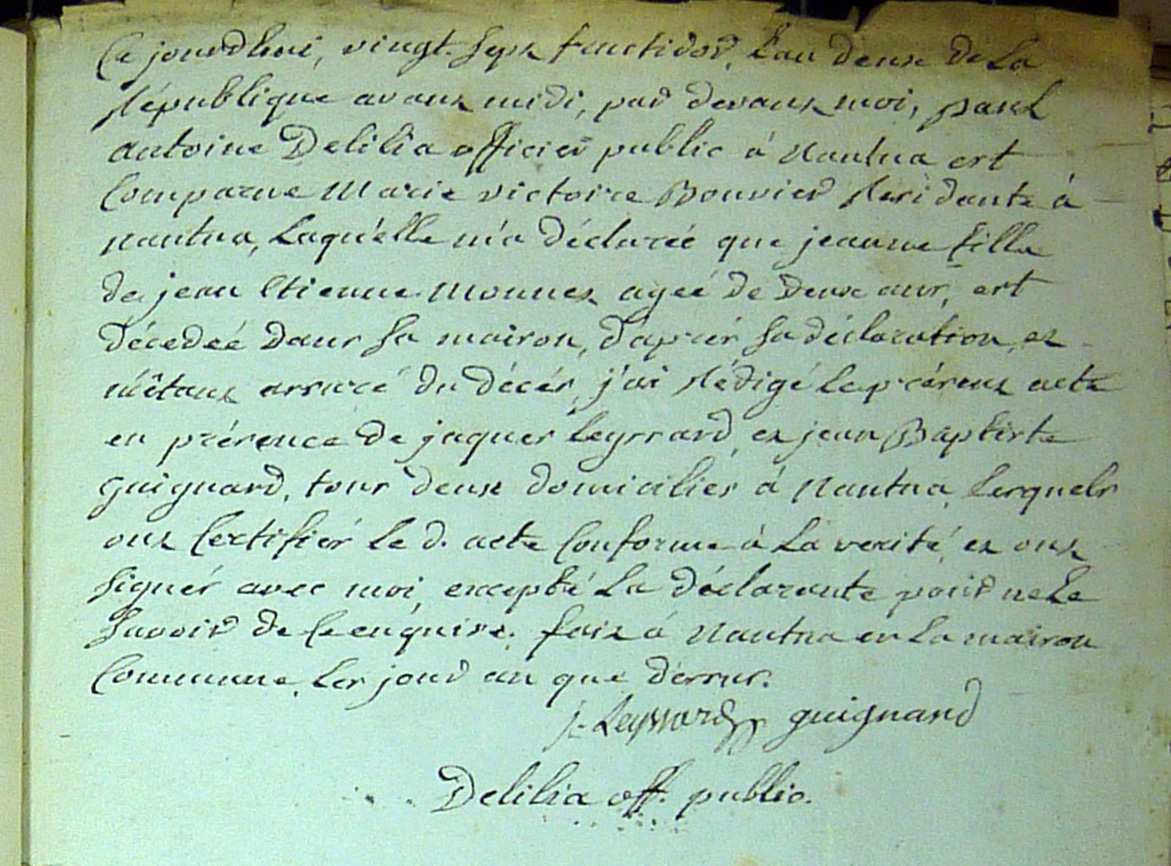 Ce jourdhui, vingt sept fructidor, l'an deux de la
République avant midi, par devant moi, paul
antoine Delilia officier public à Nantua est
Comparue Marie victoire Bouvier Residante à
nantua, Laquélle m'a déclareé que jeanne fille
de jean Etienne Monnet ageé de deux ans, est
décedeé dans sa maison, d'aprés sa déclaration, et
m'étant assuré du décés, j'ai Rédigé le présent acte
en présence de jaques leyssard, et jean Baptiste
guignard, tous deux domiciliés à Nantua, Lesquels
ont Certifiés le d. acte Conforme à La verité, et ont
signés avec moi, excepté La déclarante pour ne le
savoir de Ce enquise. fait à Nantua en La maison
Commune, Les jour an que déssus.
j. Leyssard guignard
Delilia off. public.